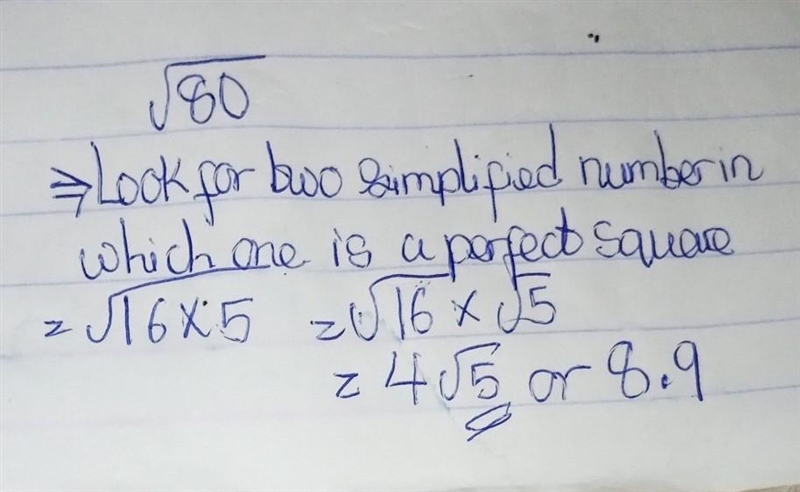 √80
⇒ Look for two simplified number in
which one is a perfect square
= √16 × 5 = √16 × √5
= 4√5 or 8.9